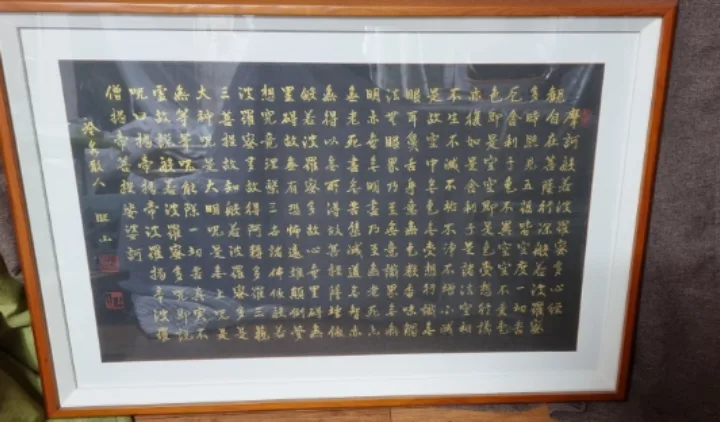 摩訶般若波羅蜜多心經
觀自在菩薩行深般若波羅蜜
多時照見五蘊皆空度一切苦
厄舍利子色不異空空不異色
色即是空空即是色受想行識
亦復如是舍利子是諸法空相
不生不滅不垢不淨不增不減
是故空中無色無受想行識無
眼耳鼻舌身意無色聲香味觸
法無眼界乃至無意識界無無
明亦無無明盡乃至無老死亦
無老死盡無苦集滅道無智亦
無得以無所得故菩提薩埵依
般若波羅蜜多故心無罣礙無
罣礙故無有恐怖遠離顛倒夢
想究竟涅槃三世諸佛依般若
波羅蜜多故得阿耨多羅三藐
三菩提故知般若波羅蜜多是
大神呪是大明呪是無上呪是
無等等呪能除一切苦真實不
虛故說般若波羅蜜多呪即說
呪曰揭帝揭帝波羅揭帝波羅
僧揭帝菩提娑婆訶
散人 山